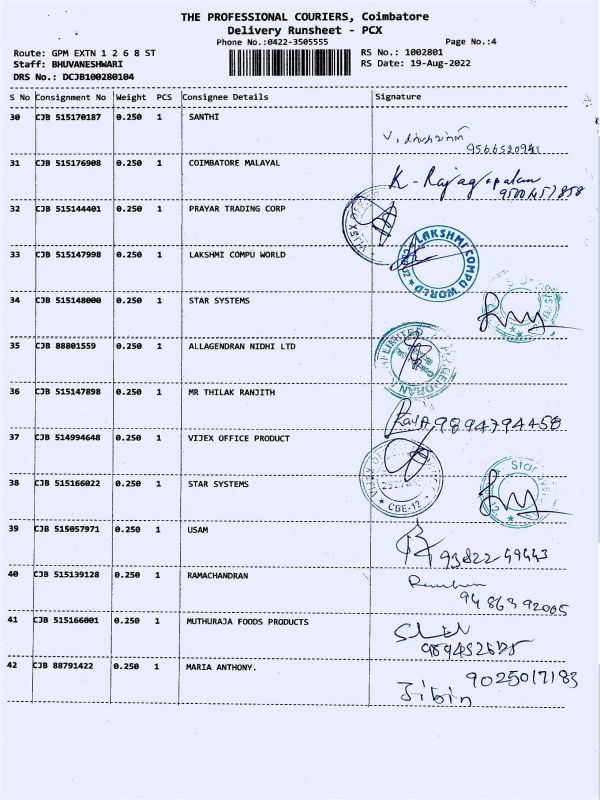 THE PROFESSIONAL COURIERS, Coimbatore
Delivery Runsheet - PCX
Phone No.:0422-3505555 Page No.:4
Route: GPM EXTN 1 2 6 8 ST RS No.: 1002801
Staff: BHUVANESHWARI RS Date: 19-Aug-2022
DRS No.: DCJB100280104
S No Consignment No Weight PCS Consignee Details Signature
30 CJB 515170187 0.250 1 SANTHI
9566520941
31 CJB 515176908 0.250 1 COIMBATORE MALAYAL
K-Rajagopalan
9500457858
32 CJB 515144401 0.250 1 PRAYAR TRADING CORP
33 CJB 515147998 0.250 1 LAKSHMI COMPU WORLD
LAKSHMI COMPU WORLD
34 CJB 515148000 0.250 1 STAR SYSTEMS
35 CJB 88801559 0.250 1 ALLAGENDRAN NIDHI LTD
LIMITED
36 CJB 515147898 0.250 1 MR THILAK RANJITH
9894794458
37 CJB 514994648 0.250 1 VIJEX OFFICE PRODUCT
CBE-12
38 CJB 515166022 0.250 1 STAR SYSTEMS
Star Sys
39 CJB 515057971 0.250 1 USAM
93822 49443
40 CJB 515139128 0.250 1 RAMACHANDRAN
94863 92005
41 CJB 515166001 0.250 1 MUTHURAJA FOODS PRODUCTS
42 CJB 88791422 0.250 1 MARIA ANTHONY.
9025017183
Jibin